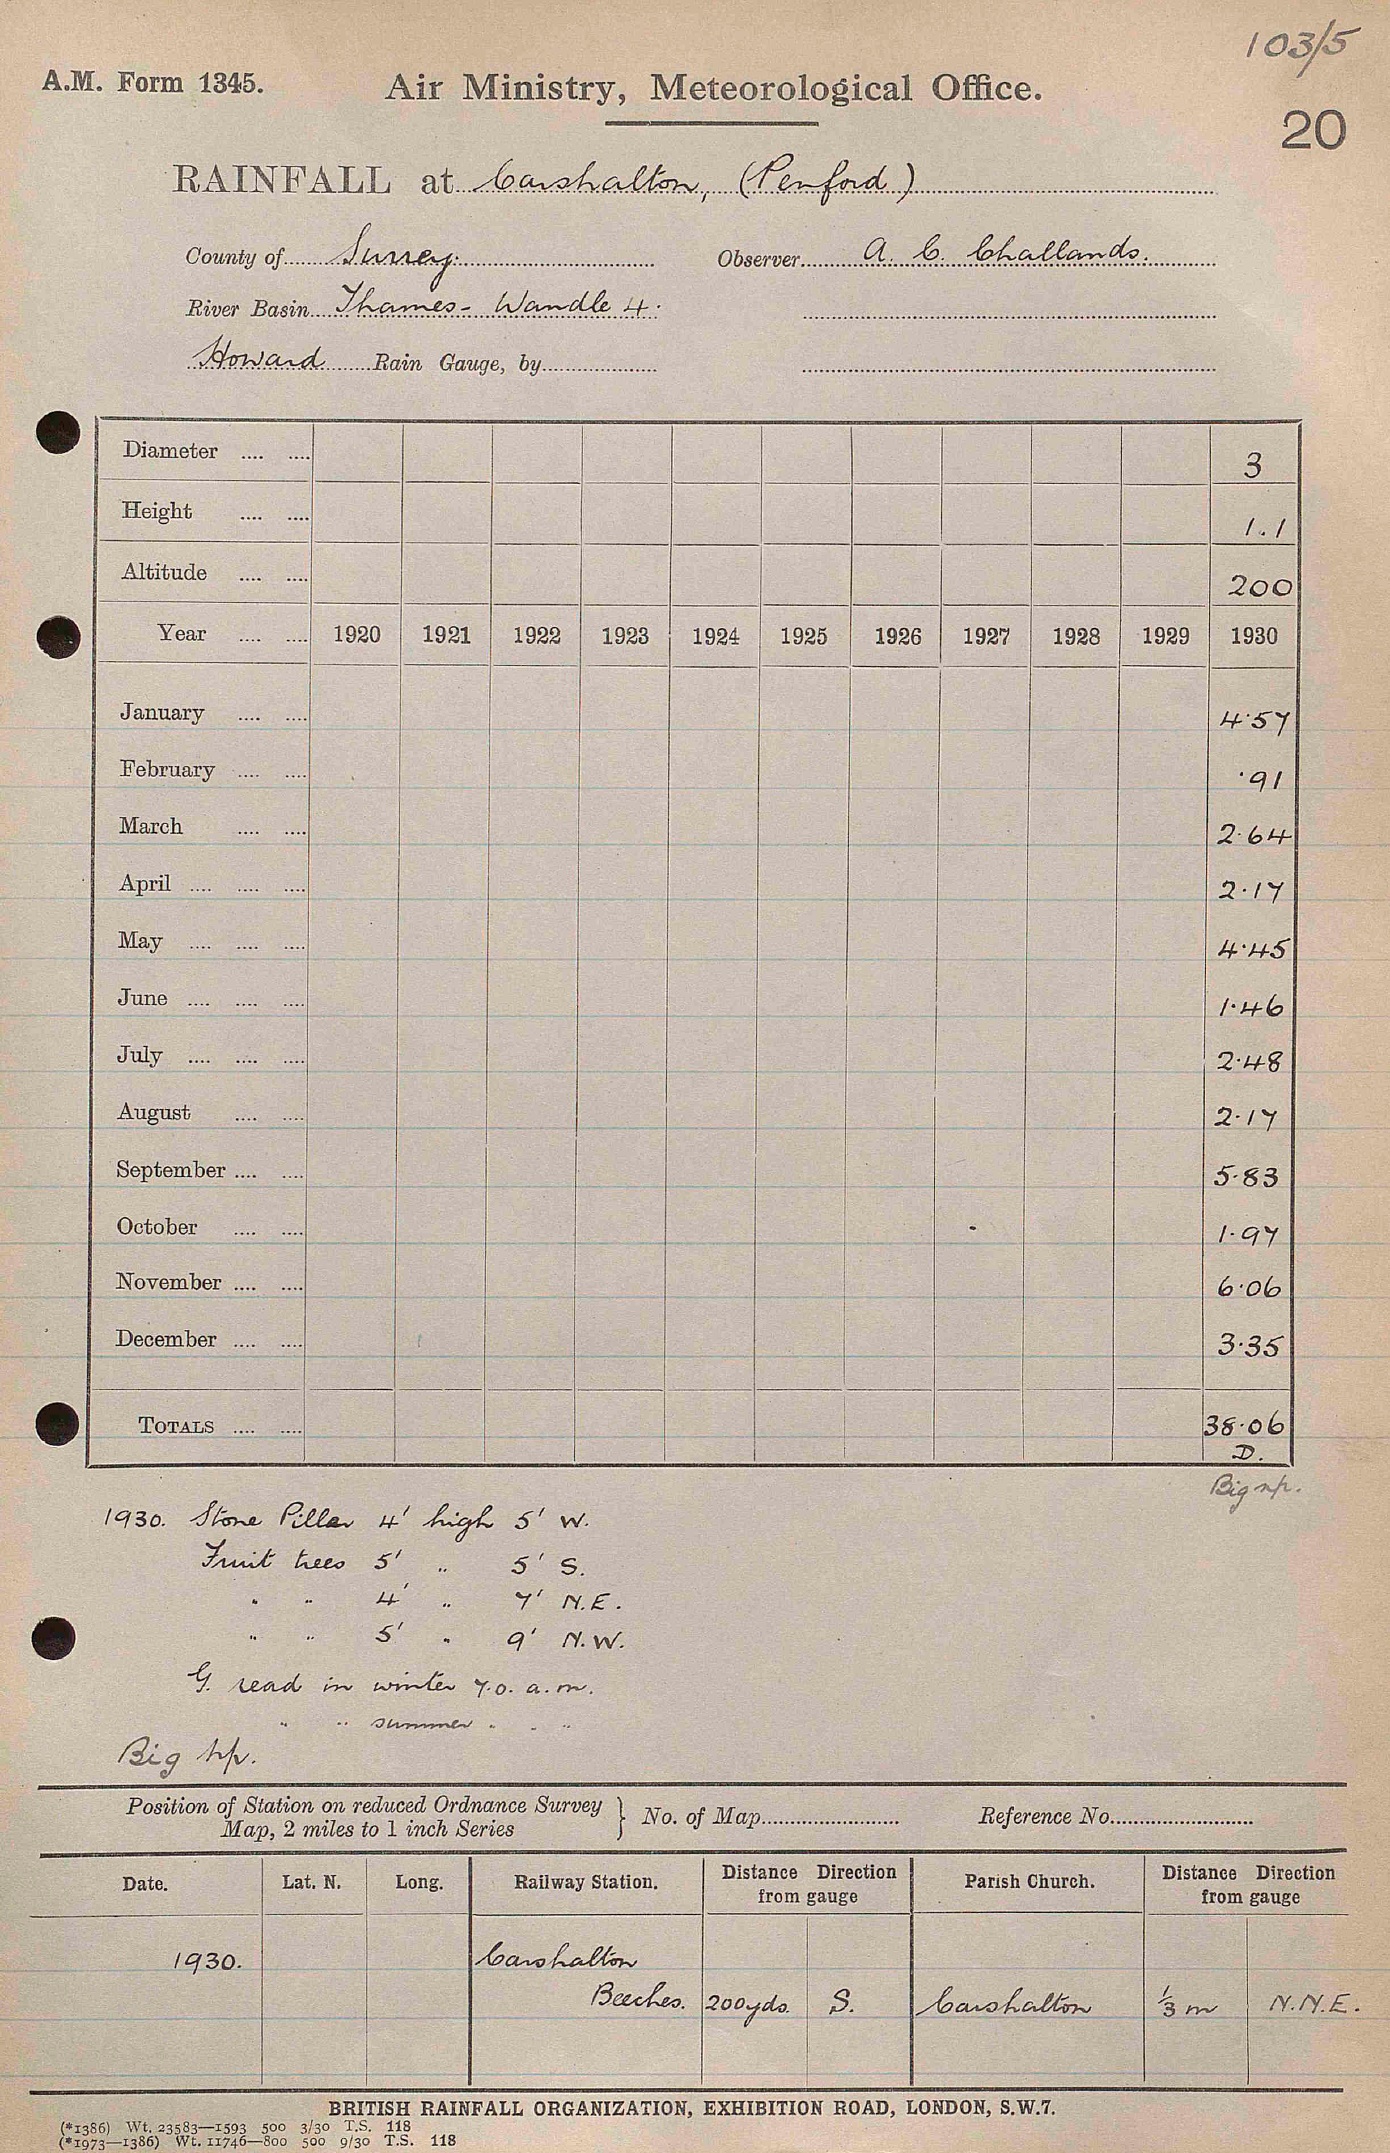 103/5
A.M. Form 1345. Air Ministry, Meteorological Office.
20
RAINFALL at Carshalton, (Penford)
County of Surrey. Observer A. C. Challands.
River Basin Thames - Wandle 4.
Howard Rain Gauge, by
Diameter .... .... 3
Height .... .... 1.1
Altitude .... .... 200
Year .... .... 1920 1921 1922 1923 1924 1925 1926 1927 1928 1929 1930
January .... .... 4·57
February .... .... ·91
March .... .... 2·64
April .... .... .... 2·17
May .... .... .... 4·45
June .... .... .... 1·46
July .... .... .... 2·48
August .... .... 2·17
September .... .... 5·83
October .... .... 1·97
November .... .... 6·06
December .... .... 3·35
TOTALS .... .... 38·06
D.
Big
1930. Stone Pillar 4' high 5' W.
Fruit trees 5' " 5' S.
" " 4' " 7' N.E.
" " 5' " 9' N.W.
G. read in winter 7.0. a.m.
" " summer " " "
Big
Position of Station on reduced Ordnance Survey
Map, 2 miles to 1 inch Series } No. of Map Reference No.
Date. Lat. N. Long. Railway Station. Distance Direction from gauge Parish Church. Distance Direction from gauge
1930. Carshalton
Beeches. 200yds. S. Carshalton 1/3 m N.N.E.
BRITISH RAINFALL ORGANIZATION, EXHIBITION ROAD, LONDON, S.W.7.
(*1386) Wt. 23583—1593 500 3/30 T.S. 118
(*1973—1386) Wt. 11746—800 500 9/30 T.S. 118